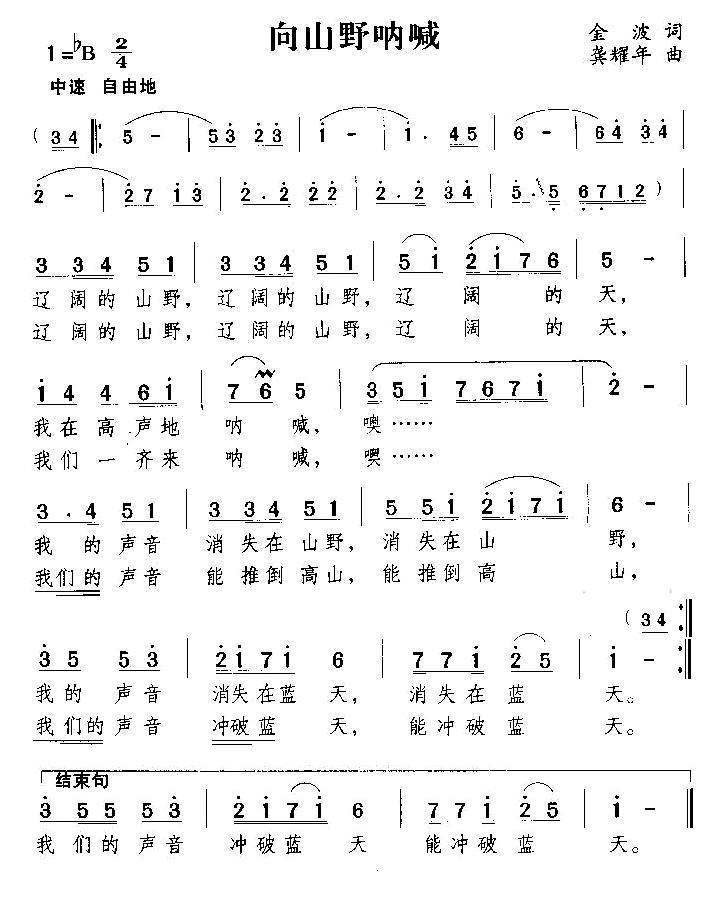 向山野呐喊
1=♭B 2/4
金波 词
龚耀年 曲
中速 自由地
( 3 4 |: 5 - | 5 3 2 3 | 1 - | 1 . 4 5 | 6 - | 6 4 3 4 |
2 - | 2 7 1 3 | 2 . 2 2 2 | 2 . 2 3 4 | 5 . 5 6 7 1 2 ) |
3 3 4 5 1 | 3 3 4 5 1 | 5 1 2 1 7 6 | 5 - |
辽 阔 的 山 野, 辽 阔 的 山 野, 辽 阔 的 天,
辽 阔 的 山 野, 辽 阔 的 山 野, 辽 阔 的 天,
1 4 4 6 1 | 7 6 5 | 3 5 1 7 6 7 1 | 2 - |
我 在 高 声 地 呐 喊, 噢……
我 们 一 齐 来 呐 喊, 噢……
3 . 4 5 1 | 3 3 4 5 1 | 5 5 1 2 1 7 1 | 6 - |
我 的 声 音 消 失 在 山 野, 消 失 在 山 野,
我们的 声 音 能 推 倒 高 山, 能 推 倒 高 山,
( 3 4 :|
3 5 5 3 | 2 1 7 1 6 | 7 7 1 2 5 | 1 - :|
我 的 声 音 消 失 在 蓝 天, 消 失 在 蓝 天。
我们的 声 音 冲破 蓝 天, 能 冲 破 蓝 天。
结束句
3 5 5 5 3 | 2 1 7 1 6 | 7 7 1 2 5 | 1 - ‖
我 们 的 声 音 冲 破 蓝 天 能 冲 破 蓝 天。